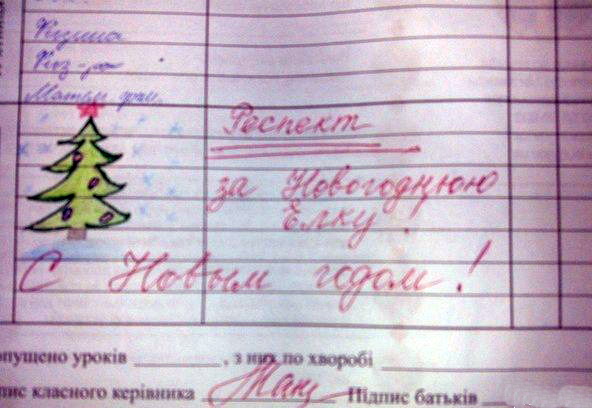 Физ-ра
Респект
за Новогоднюю
Ёлку!
С Новым годом!
опущено уроків , з них по хворобі
пис класного керівника Підпис батьків